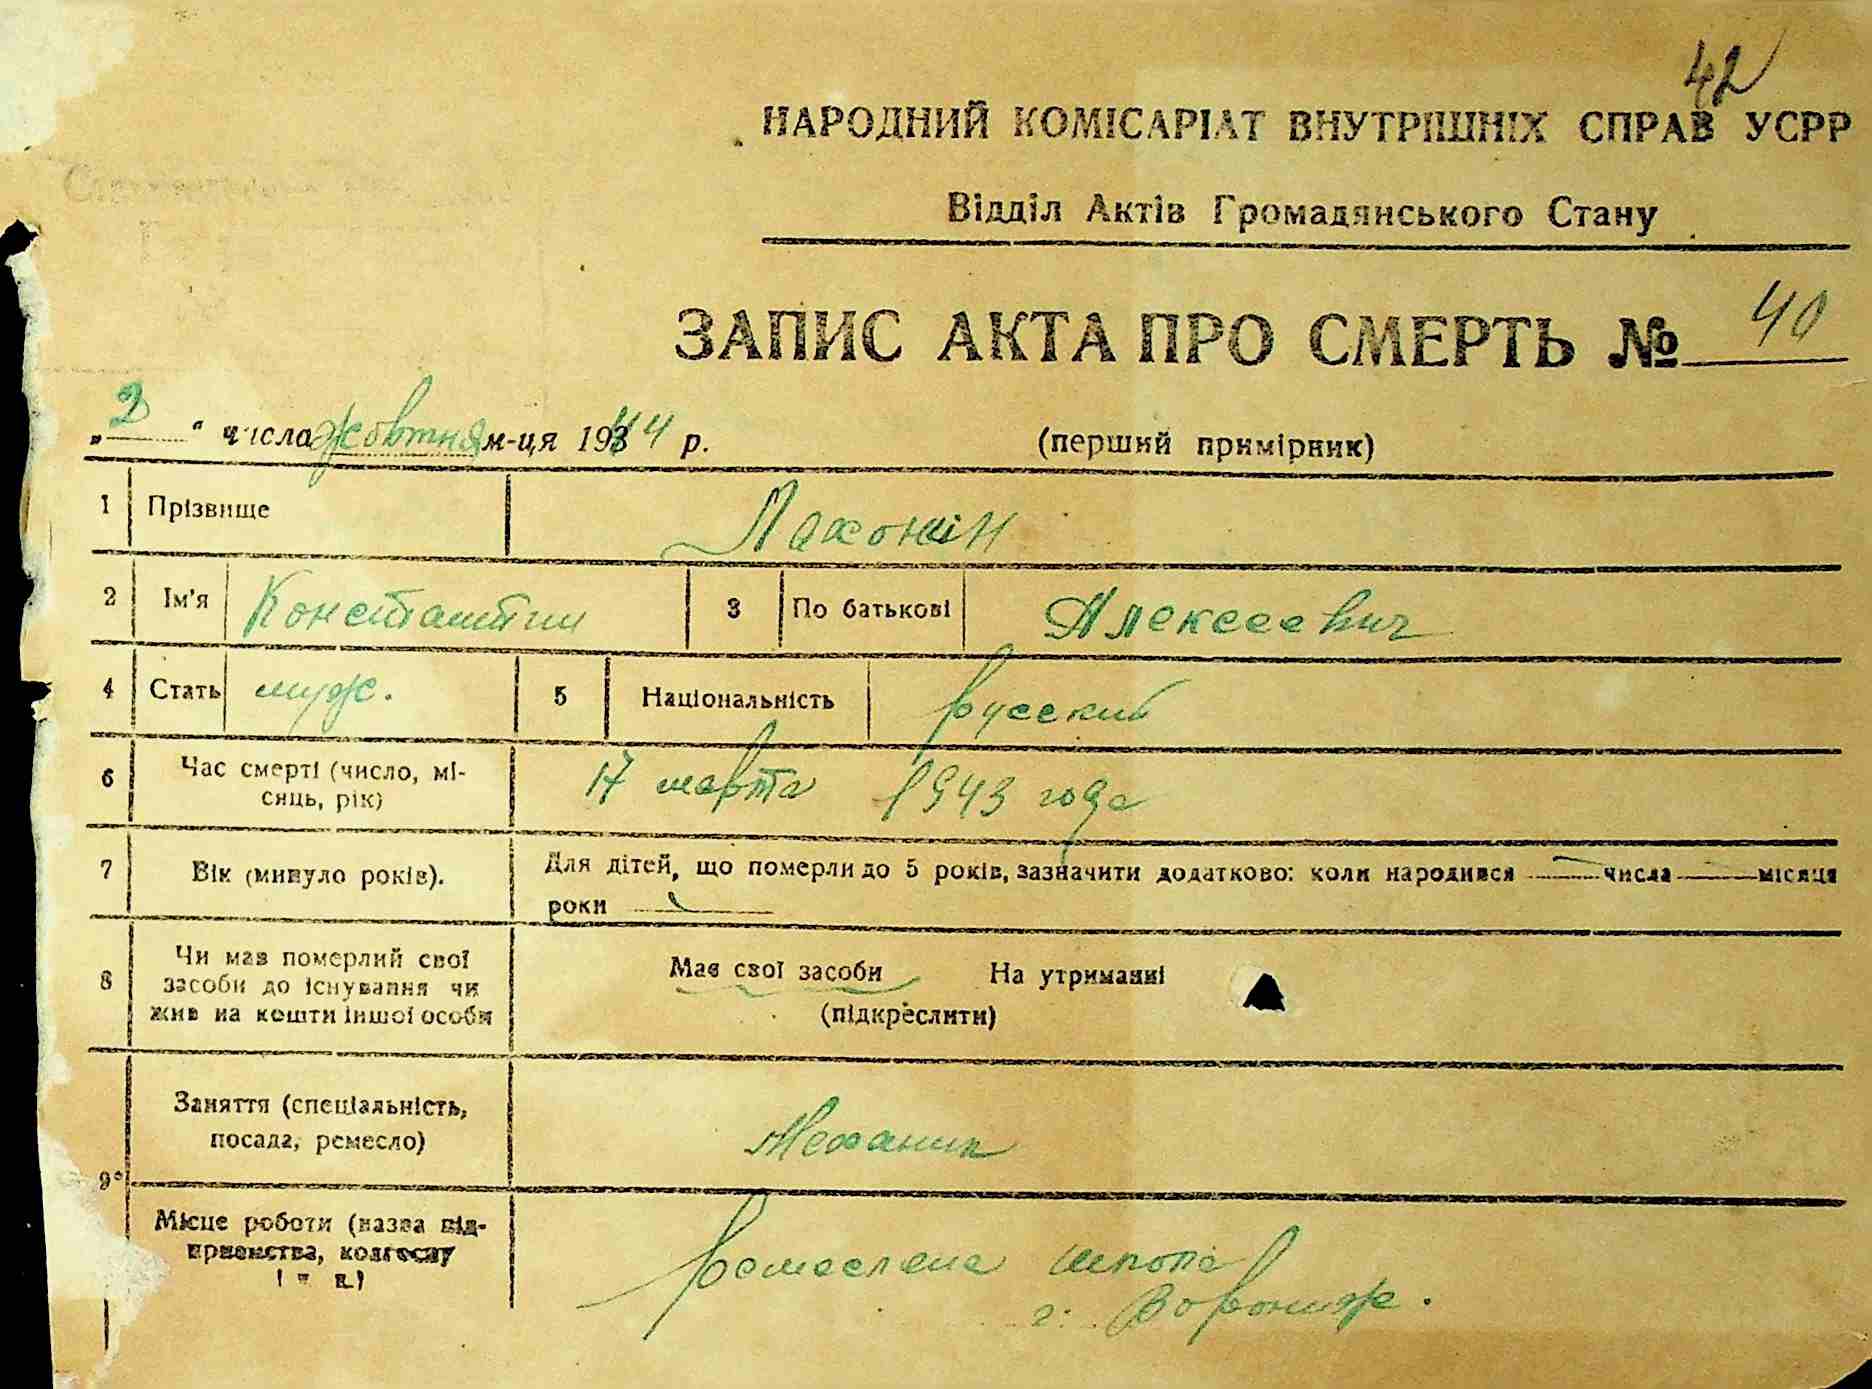 42
НАРОДНИЙ КОМІСАРІАТ ВНУТРІШНІХ СПРАВ УСРР
Відділ Актів Громадянського Стану
ЗАПИС АКТА ПРО СМЕРТЬ № 40
„2“ числа жовтня м-ця 1944 р. (перший примірник)
1 Прізвище Пахонін
2 Ім'я Константин 3 По батькові Алексеевич
4 Стать муж. 5 Національність русский
6 Час смерті (число, мі-
сяць, рік) 17 марта 1943 года
7 Вік (минуло років). Для дітей, що померли до 5 років, зазначити додатково: коли народився числа місяця
роки
8 Чи мав померлий свої
засоби до існування чи
жив на кошти іншої особи
Має свої засоби На утриманні
(підкреслити)
9 Заняття (спеціальність,
посада, ремесло) Механик
Місце роботи (назва під-
приємства, колгоспу
і т. п.)
Ремеслена школа
г.Ворониж.